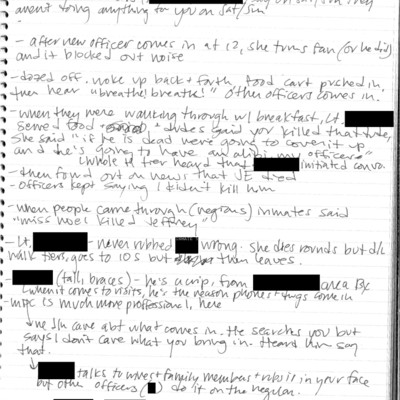 aren't doing anything to you on sat/sun
- after new officer comes in at 12, she turns fan (or he did)
and it blocked out noise
- dozed off. woke up back + forth, food cart pushed in.
then hear "breathe! breathe!" Other officers comes in.
- when they were walking through w/ breakfast, Lt.
served food + dudes said you killed that dude,
She said "if he is dead we're going to cover it up
and he's going to have an alibi, my officers"
Whole tier heard that initiated convo
- then found out on news that JE died
- officers kept saying I didn't kill him
- when people came through inmates said
"miss Noel killed Jeffrey"
- Lt. - never rubbed wrong. She does rounds but
walk tiers, goes to 10s but then leaves.
- (tall, braces) - he's a crip, from area Bx
when it comes to visits, he's the reason phones + drugs come in
- MDC is much more professional, here
care abt what comes in. He searches you but
says I don't care what you bring in. Heard him say
that.
talks to wives + family members + rubs it in your face
but other officers do it on the regular.